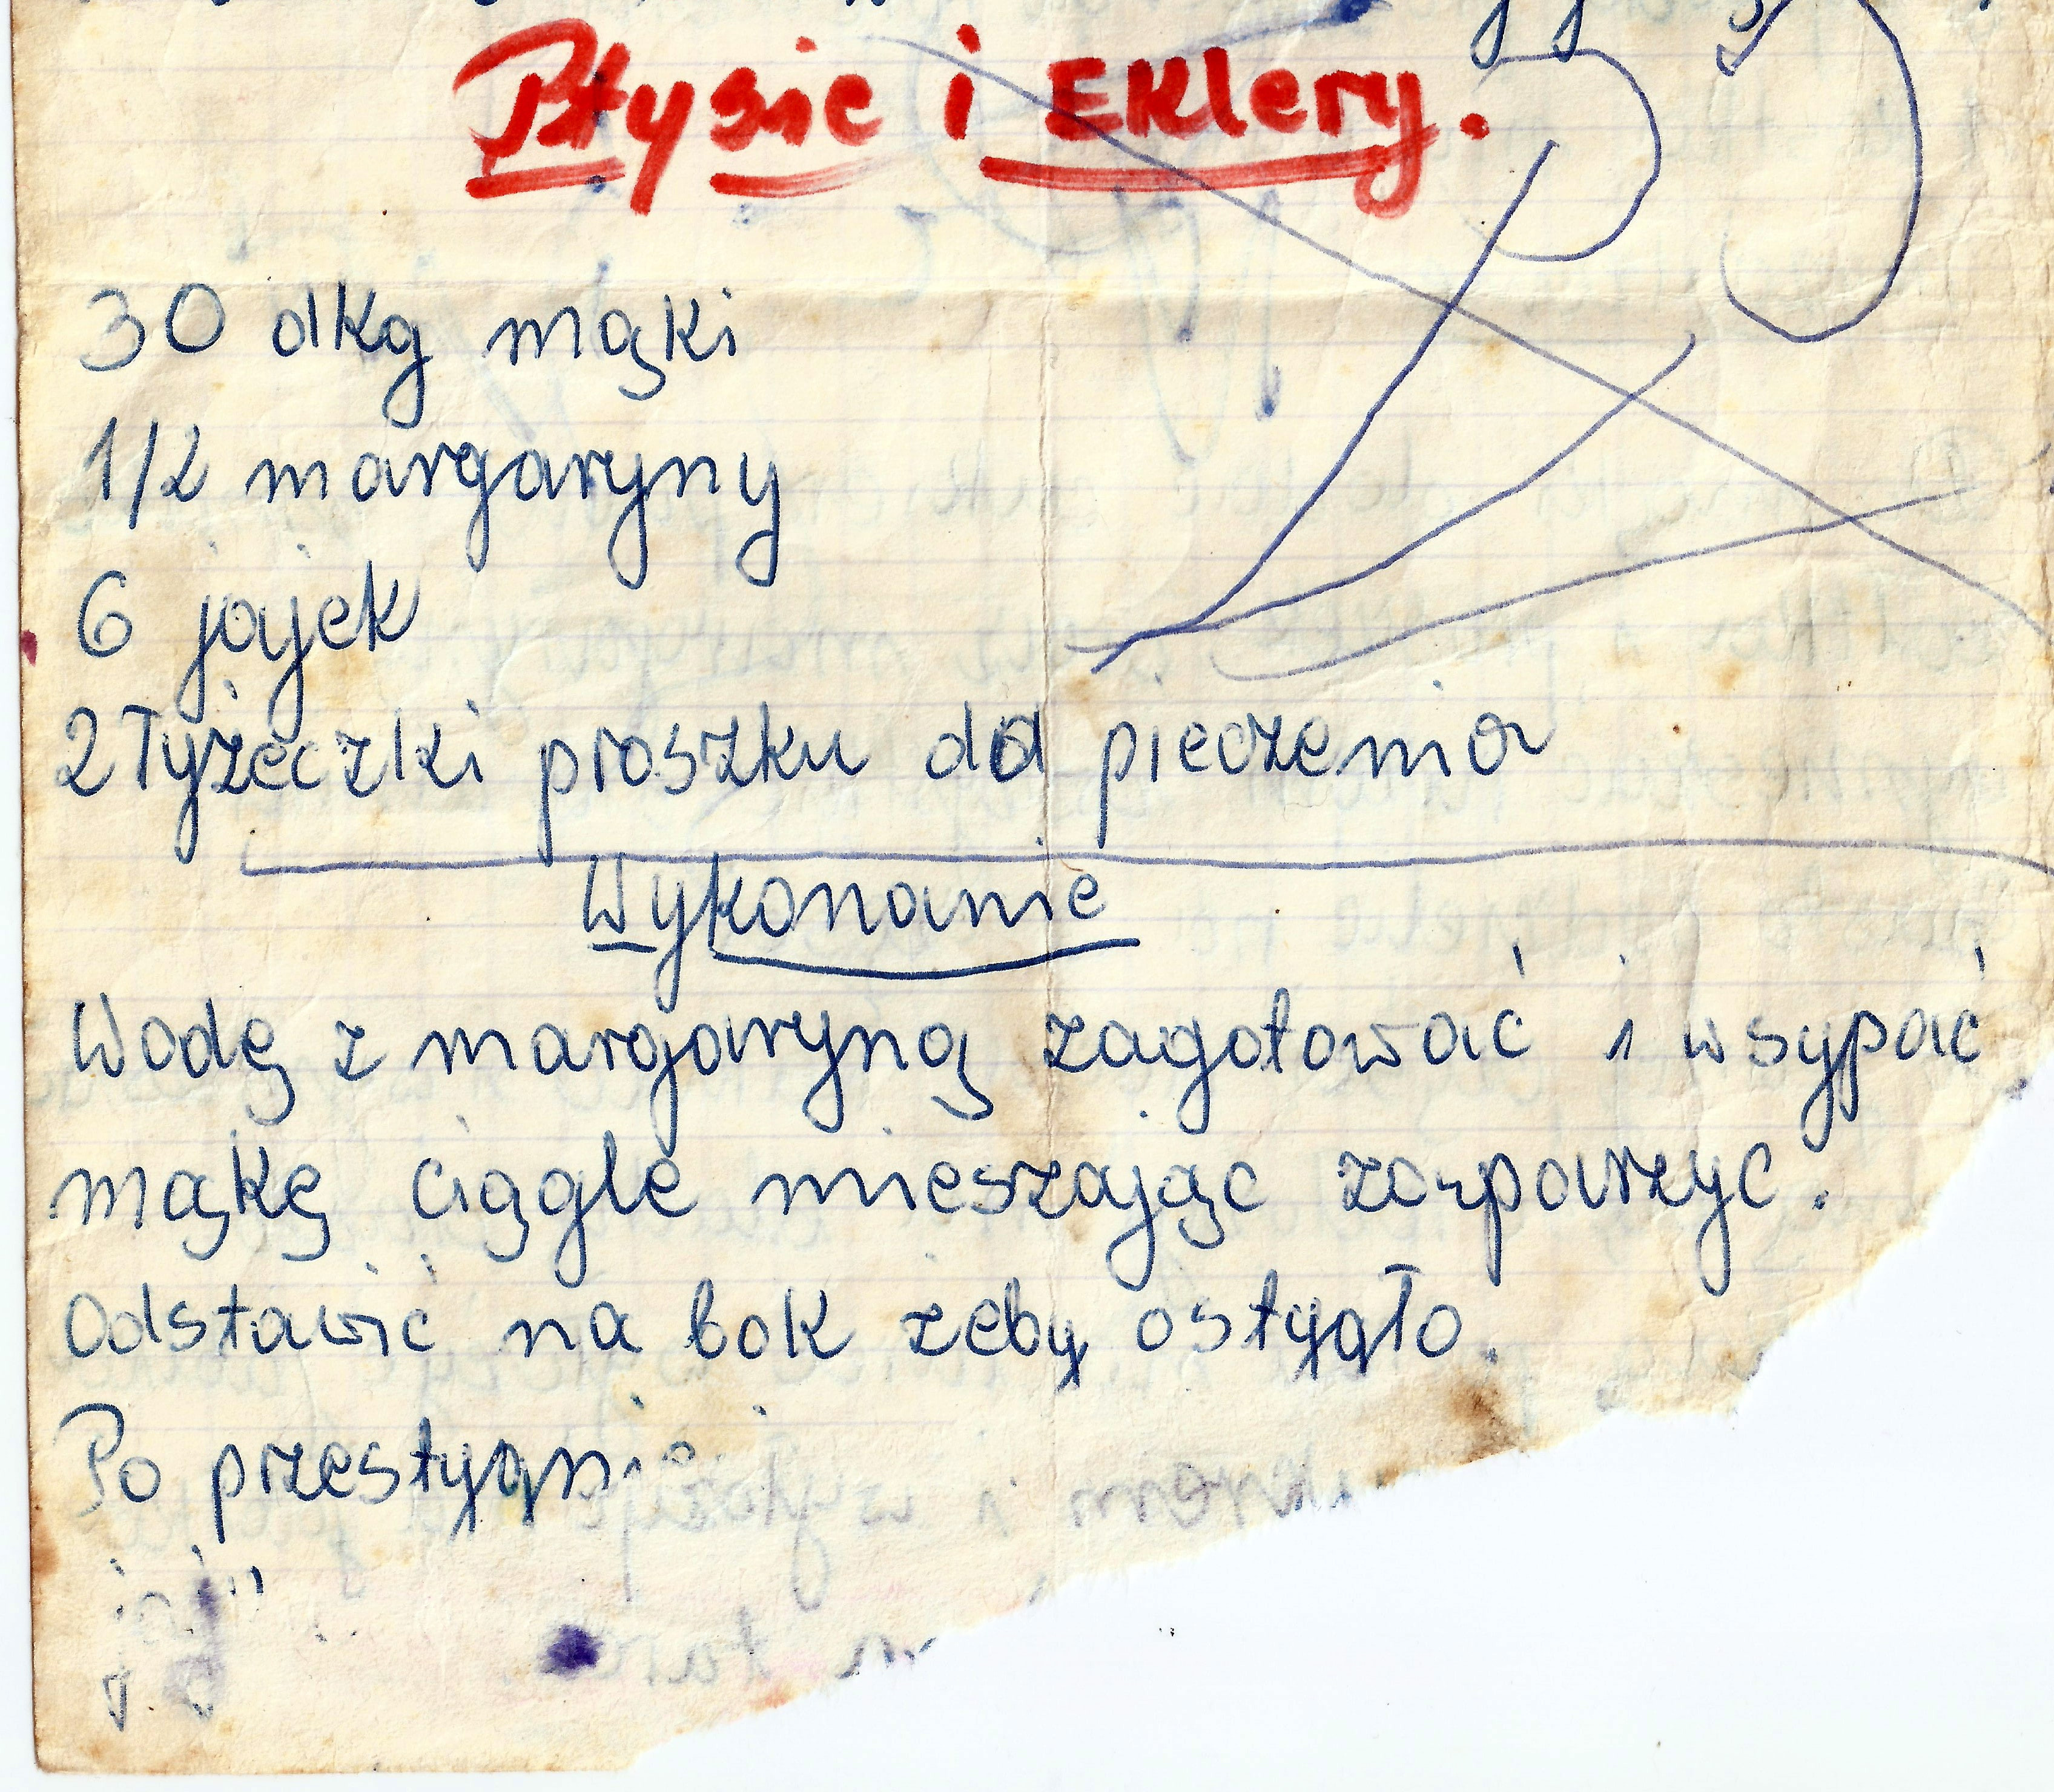 Ptysie i Eklery.
30 dkg mąki
1/2 margaryny
6 jajek
2 Tyżeczki proszku do pieczenia
Wykonanie
Wodę z margaryną zagotować i wsypać
mąkę ciągle mieszając zaparzyc.
Odstawić na bok zeby ostygło.
Po